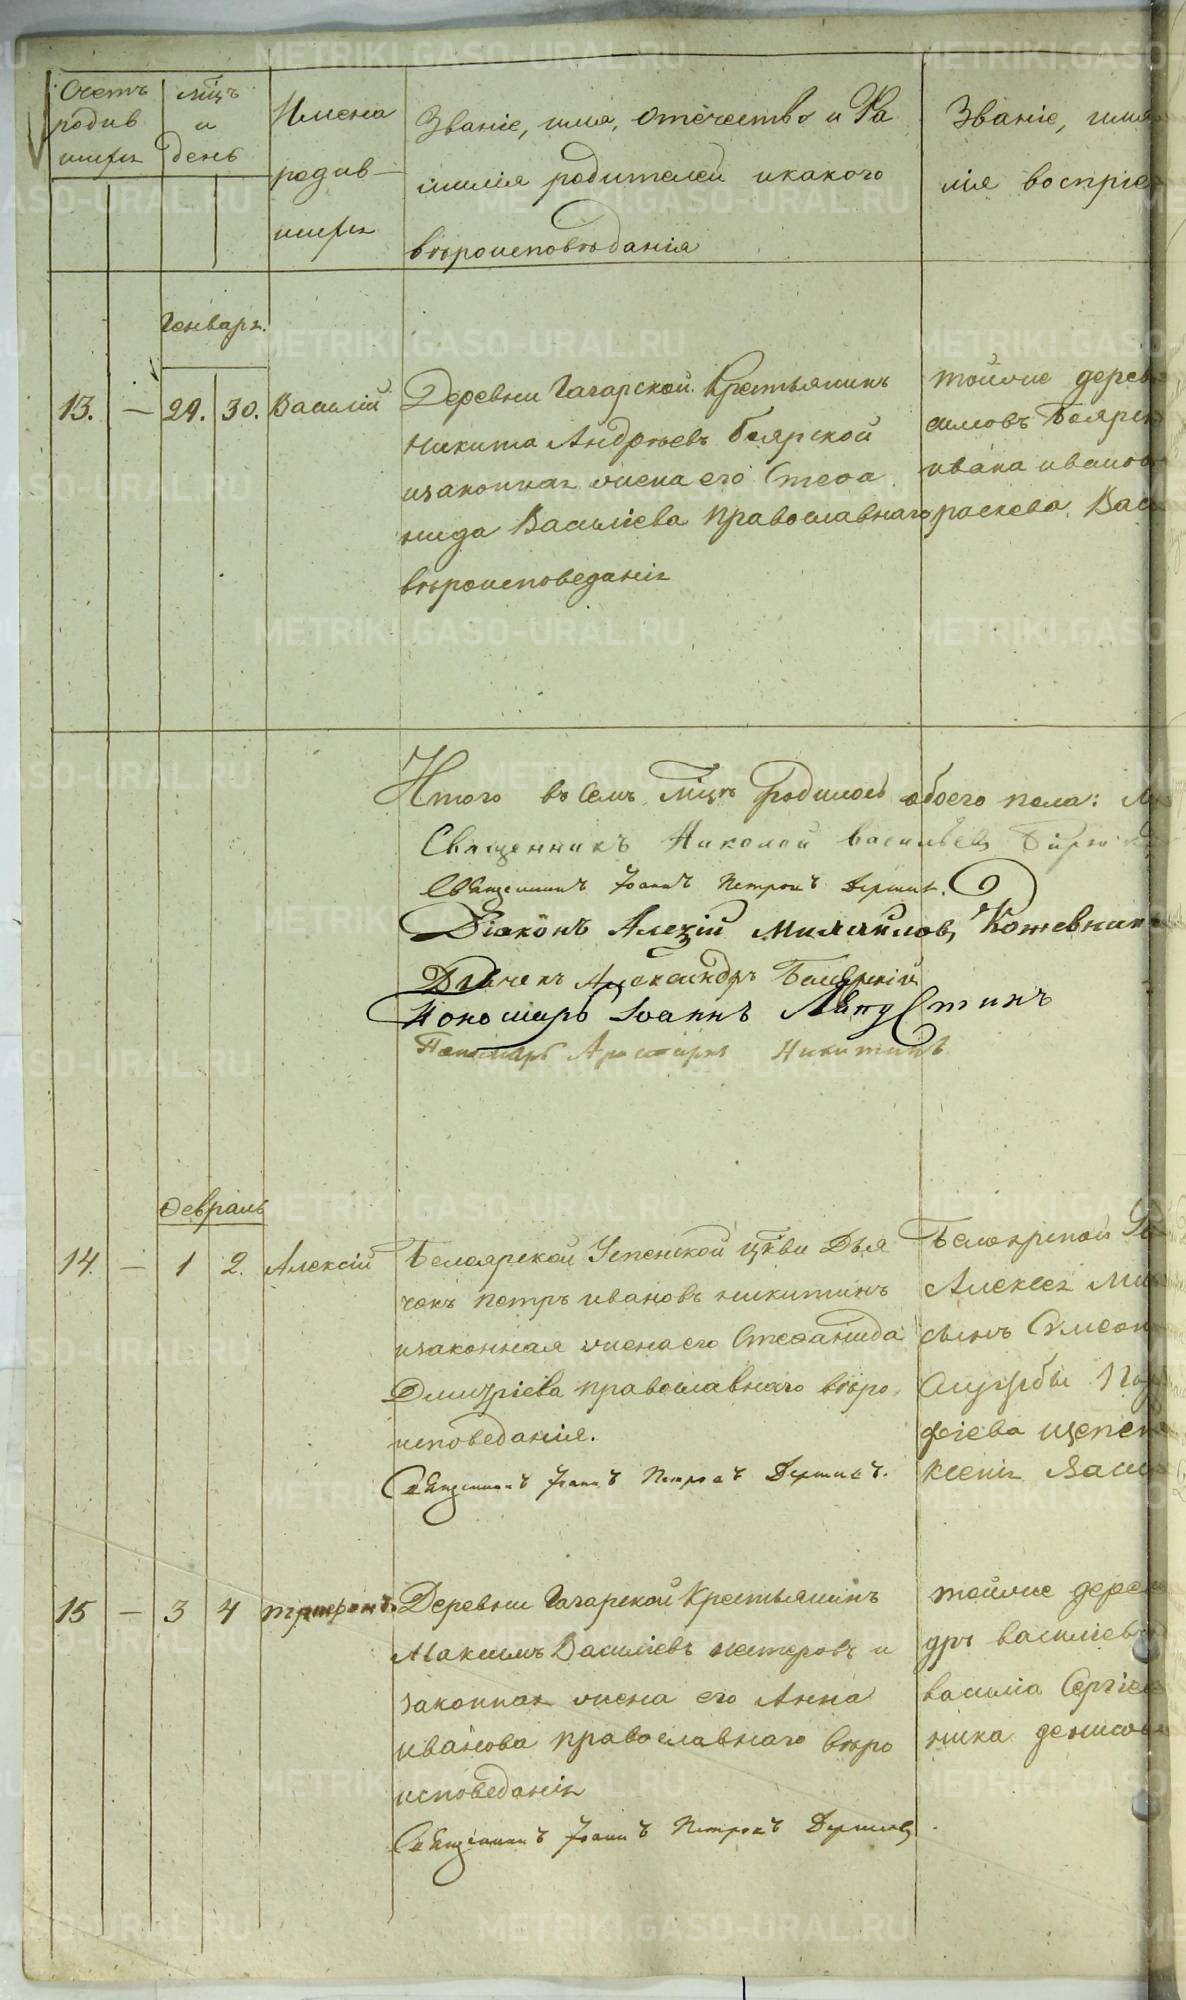 Счетъ
родив
шихся
мцъ
и
день
Имена
родив—
шихся
Званіе, имя, отечество и Фа
милія родителей и какого
вѣроисповѣданія
Званіе, имя
лія воспріе
Генварь.
13. — 29. 30. Василій
Деревни Гагарской Крестьянинъ
Никита Андрѣевъ Боярской
изаконная жена его Стефа
нида Василіева Православнаго
вѣроисповеданія
тойже дерев
симовъ Боярс
ивана иванов
раскева Вас
Итого въ семъ мцѣ Родилось обоего пола:
Священникъ Николай васильев
Священникъ Іоаннъ Петровъ
Діаконъ Алексій Михайлов, Кожевник
Дьячекъ Александръ Боярскій
Пономарь Іоаннъ Лапустинъ
Пономарь Аристархъ Никитинъ
Февраль
14. — 1 2. Алексій
Белоярской Успенской цкви Дья
чекъ петръ ивановъ никитинъ
изаконная жена его Стефанида
Дмитріева православнаго вѣро
исповеданія.
Священникъ Іоаннъ Петровъ
Белоярской Ус
Алексея Ми
сынъ Симеон
Службы
фіева щепе
ксенія Васи
15 — 3 4 трифонъ.
Деревни Гагарской Крестьянинъ
Максимъ Василіевъ нестеровъ и
законная жена его Анна
иванова православнаго вѣро
исповеданія
Священникъ Іоаннъ Петровъ
тойже дере
дръ василіевъ
василіа Сергіев
ника денисов
METRIKI.GASO-URAL.RU